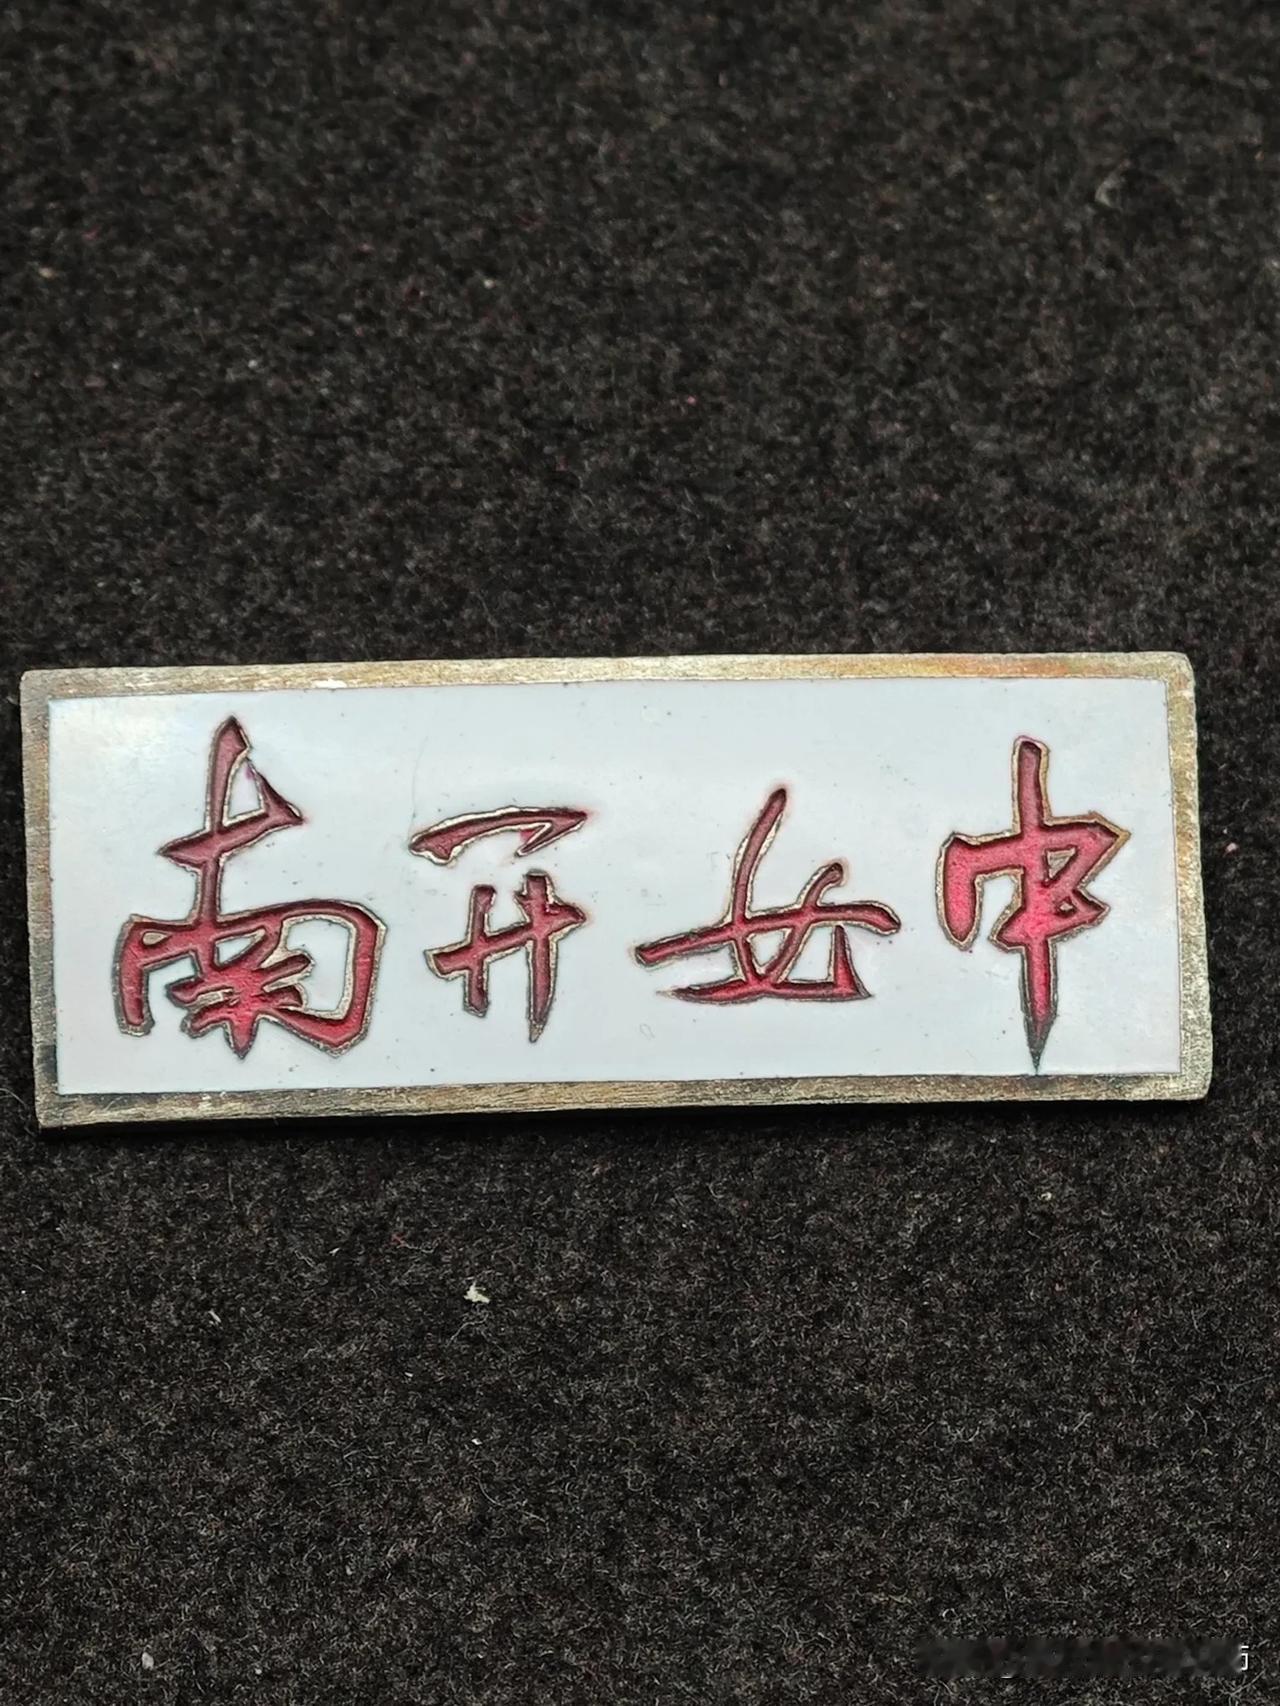 南开女中